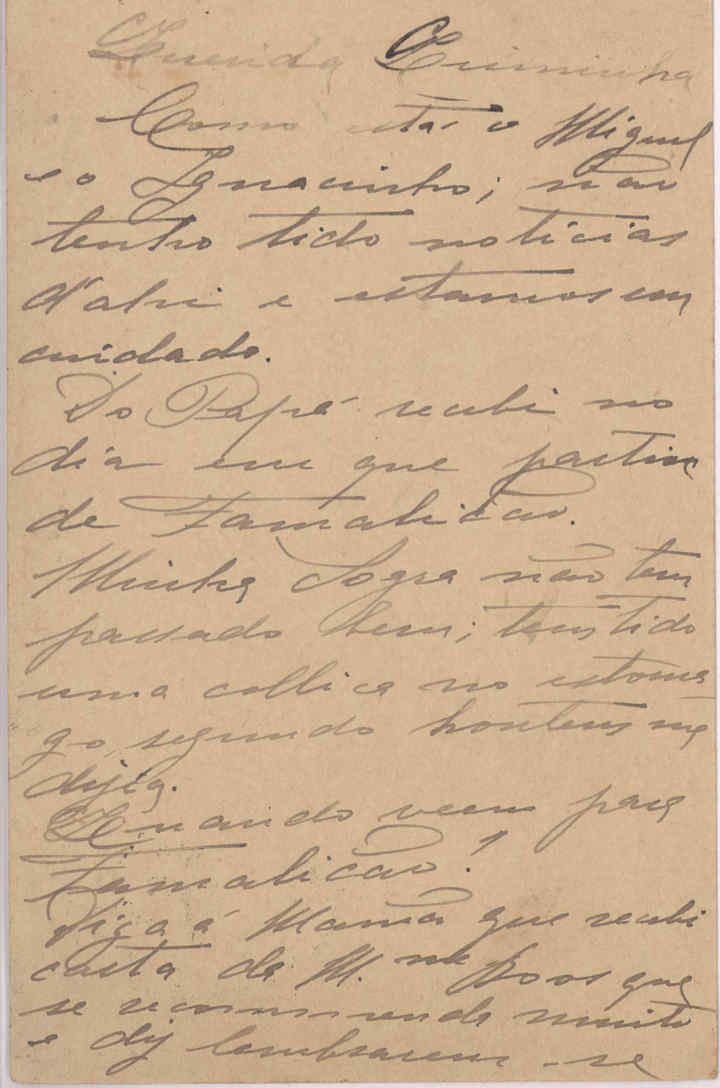 Querida Quiminha
Como está o Miguel
e o Ignacinho; não
tenho tido noticias
d'ahi e estamos em
cuidado.
Do Papá recebi no
dia em que partiu
de Famalicão.
Minha Sogra não tem
passado bem; tem tido
uma collica no estoma
go, segundo hontem me
dizia.
Quando veem para
Famalicão?
Diga á Mamã que recebi
carta de M.me Boos que
se recommenda muito
e diz lembrarem-se